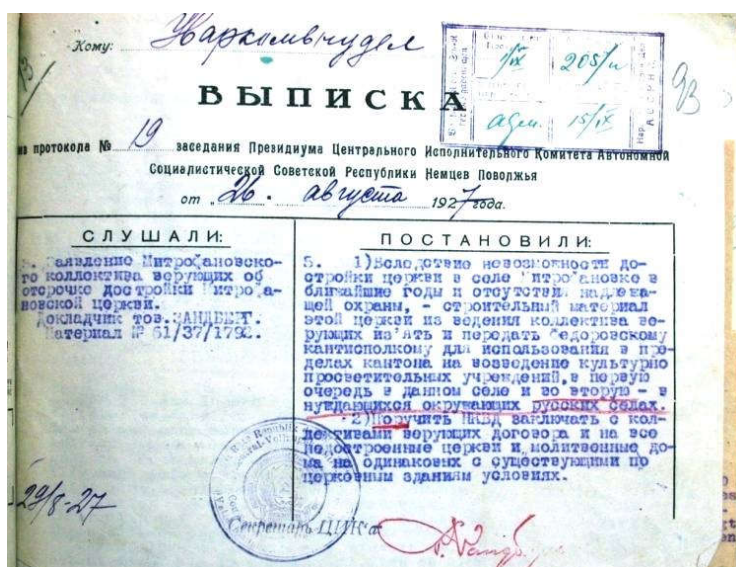 Кому: Наркомвнудел
93
ВЫПИСКА
1/IX 205/н
адм. 15/IX
из протокола № 19 заседания Президиума Центрального Исполнительного Комитета Автономной
Социалистической Советской Республики Немцев Поволжья
от „26. августа 1927 года.
СЛУШАЛИ:
Заявление Митрофановско-
го коллектива верующих об
отсрочке достройки Митрофа-
новской церкви.
Докладчик тов. ЗАНДБЕРГ.
Материал № 61/37/179
ПОСТАНОВИЛИ:
1) Вследствие невозможности до-
стройки церкви в селе Митрофановке в
ближайшие годы и отсутствия надлежа-
щей охраны, - строительный материал
этой церкви из ведения коллектива ве-
рующих из'ять и передать Федоровскому
кантисполкому для использования в пре-
делах кантона на возведение культурно
просветительных учреждений, в первую
очередь в данном селе и во вторую - в
нуждающихся окружающих русских селах.
2) Поручить НКВД заключать с кол-
лективами верующих договора и на все
недостроенные церкви и молитвенные до-
ма на одинаковых с существующими по
церковным зданиям условиях.
29/8-27
Секретарь ЦИК'а